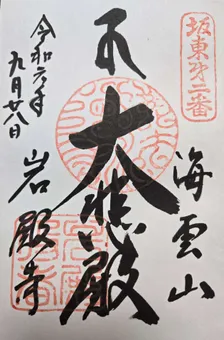 坂東㐧二番
海雲山
大悲殿
令和六年
九月廿八日
岩殿寺